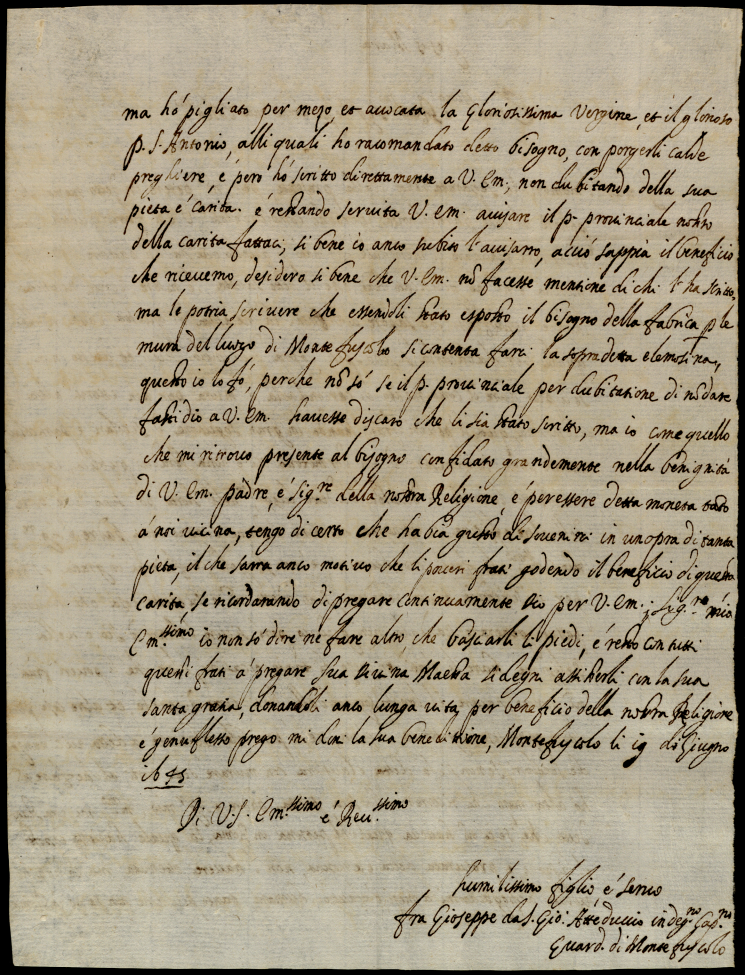 ma hò pigliato per mezo, et avocata la Gloriosissima Vergine, et il glorioso
p. S. Antonio, alli quali ho racomandato detto bisogno, con porgerli calde
preghiere, e però hò scritto direttamente a V. Em., non dubitando della sua
pieta é carita. é restando servita V. Em. avisare il p. provinciale nostro
della carita fattaci, si bene io anco subito l'avisarrò, acciò sappia il beneficio
che ricevemo, desidero si bene che V. Em. nõ facesse mentione di chi l'ha scritto,
ma le potria scrivere che essendoli stato esposto il bisogno della fabrica p le
mura del luogo di Monte fuscolo si contenta farci la sopradetta elemosina,
questo io lo fò, perche nõ só se il p. provinciale per dubitatione di nõ dare
fastidio a V. Em. havesse discaro che li sia stato scritto, ma io come quello
che mi ritrovo presente al bisogno confidato grandemente nella benignità
di V. Em. padre, é sig.re della nostra Religione, é per essere detta moneta
à noi vicina, tengo di certo che habia gusto di sovenirci in un opra di tanta
pieta, il che sarra anco motivo che li poveri frati godendo il beneficio di questa
carità, se ricordarando di pregare continuamente Dio per V. Em.; Sig.re mio
Em.ssimo io non só dire ne fare altro che basciarli li piedi, e resto con tutti
questi frati a pregare sua Divina Maestà si degni assisterli con la sua
santa gratia, donandoli anco lunga vita per beneficio della nostra Religione
é genuflesso prego mi doni la sua beneditione, Montefuscolo li 19 di Giugno
1645
Di V. S. Em.ssimo é Rev.ssimo
humilissimo figlio é servo
fra Gioseppe da S. Gio: indeg.no Cap.no
Guard. di Monte fuscolo